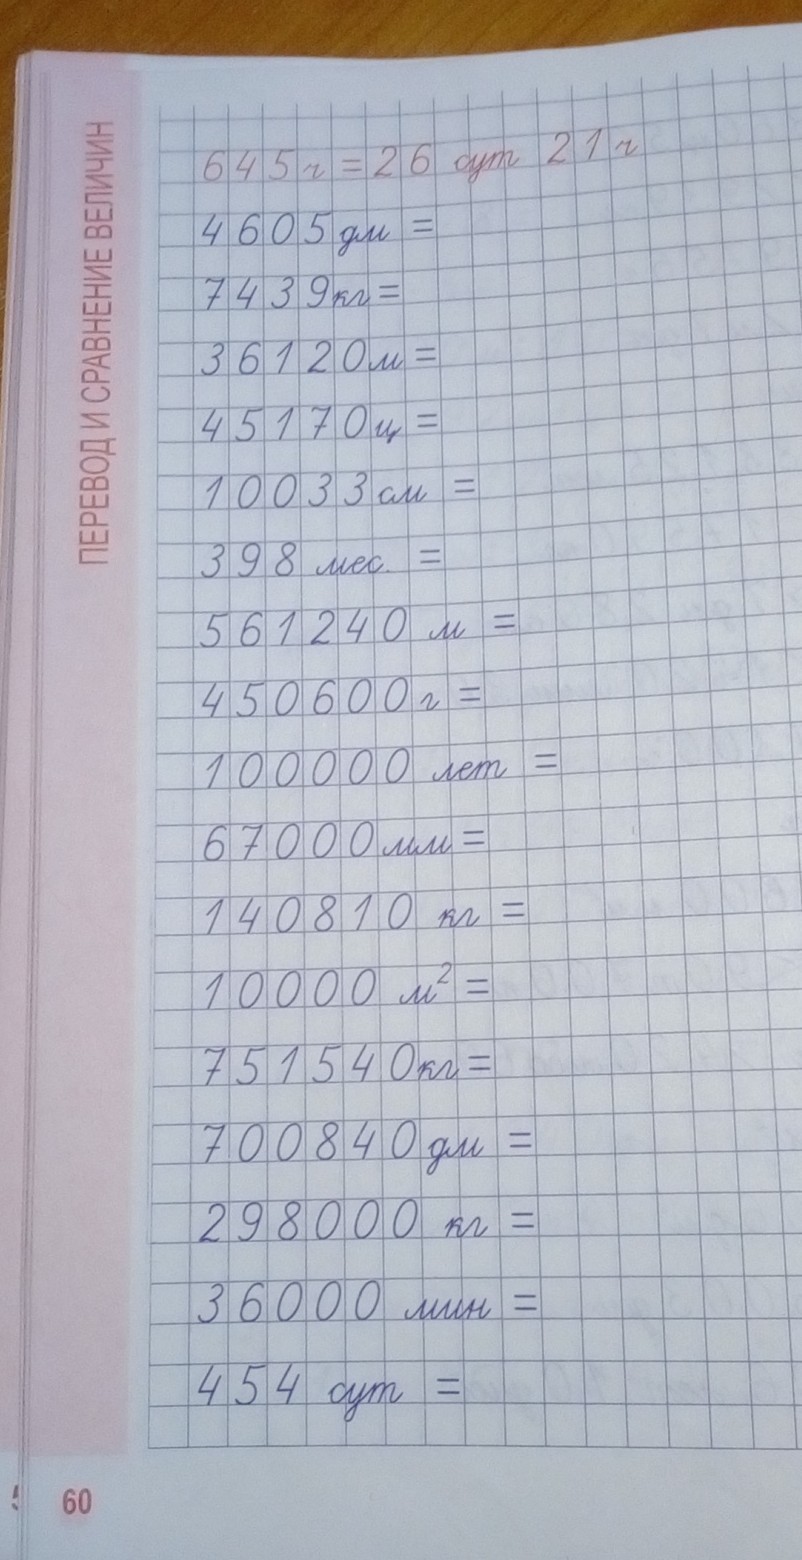 ПЕРЕВОД И СРАВНЕНИЕ ВЕЛИЧИН
645ч = 26 сут 21ч
4605дм =
7439кг=
36120м =
45170ц =
10033см =
398 мес. =
561240 м =
450600г =
100000 лет =
67000мм =
140810 кг =
10000 м² =
751540кг =
700840дм =
298000 кг =
36000 мин =
454 сут =
60